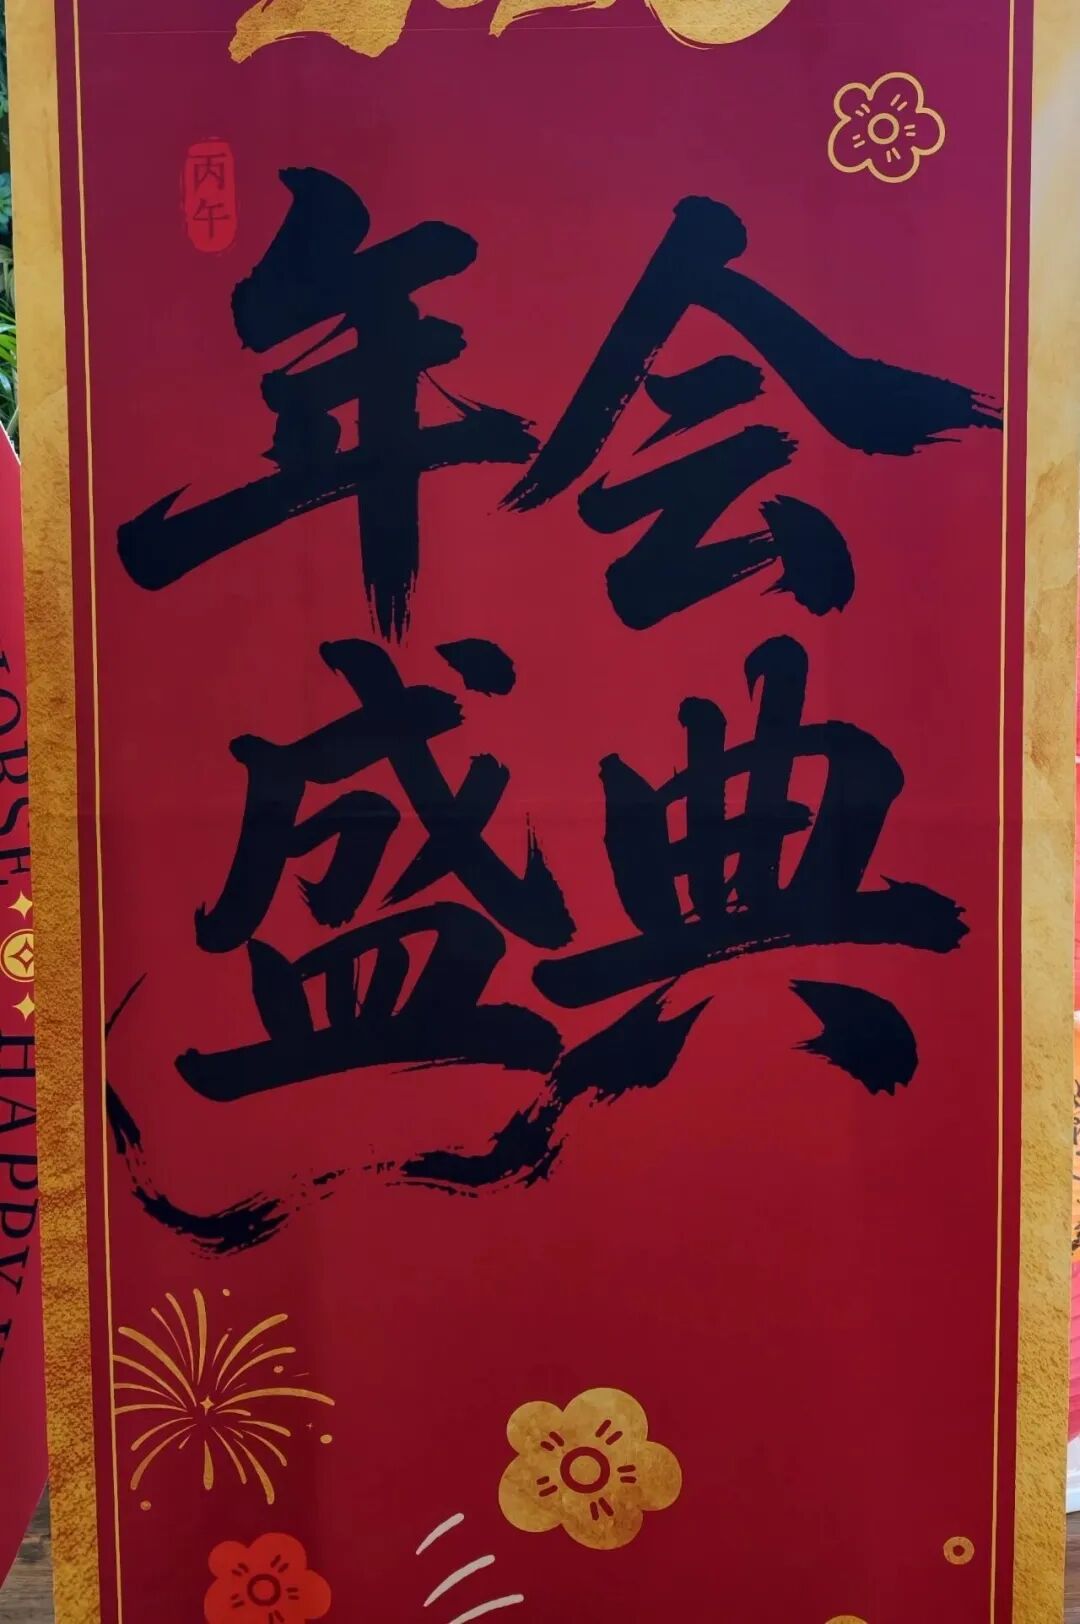 丙午
年会
盛典
HORSE
HAPPY